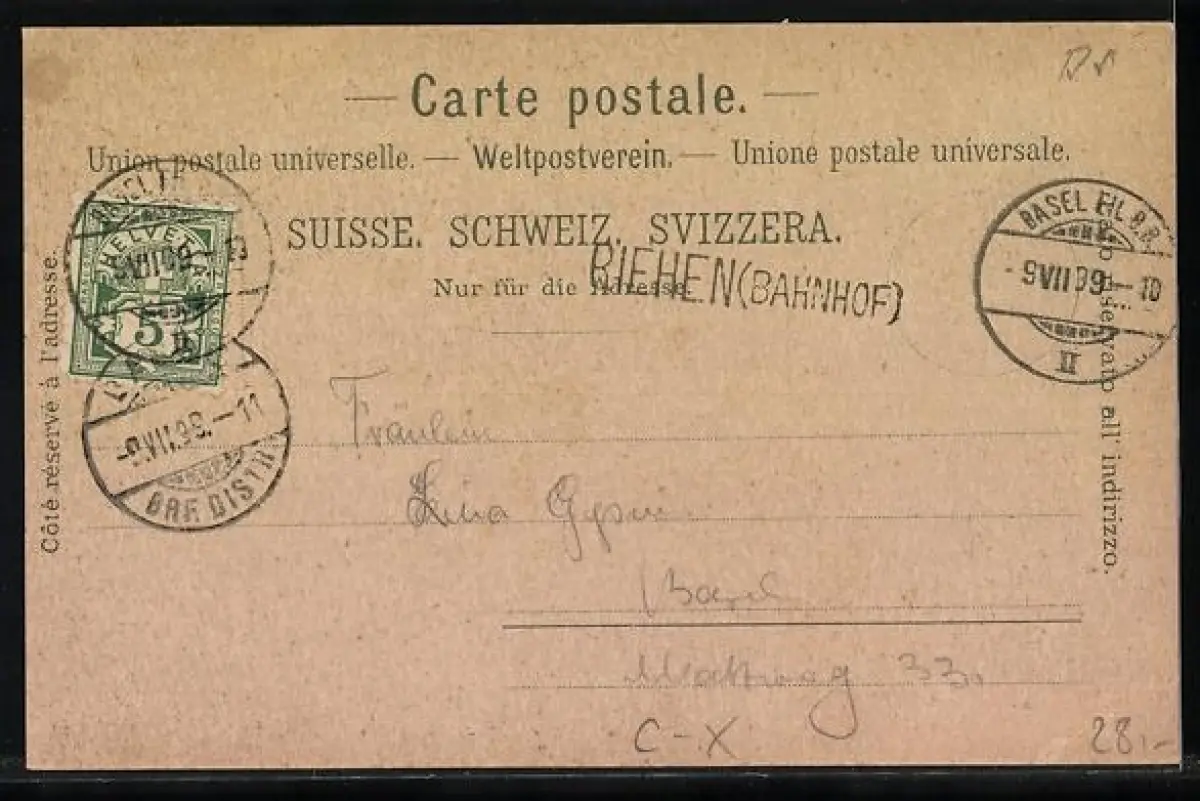 Carte postale.
Union postale universelle. — Weltpostverein. — Unione postale universale.
SUISSE. SCHWEIZ. SVIZZERA.
Nur für die Adresse.
RIEHEN (BAHNHOF)
Côté réservé à l'adresse.
Lato riservato all' indirizzo.
HELVETIA
5
BASEL
II
-9VII99.-11
BRF. DISTR.
BASEL FIL. B.B.
-9VII99.-10
II
Fräulein
Lina Gysin
Basel
Mattweg 33.
C-X
28.-